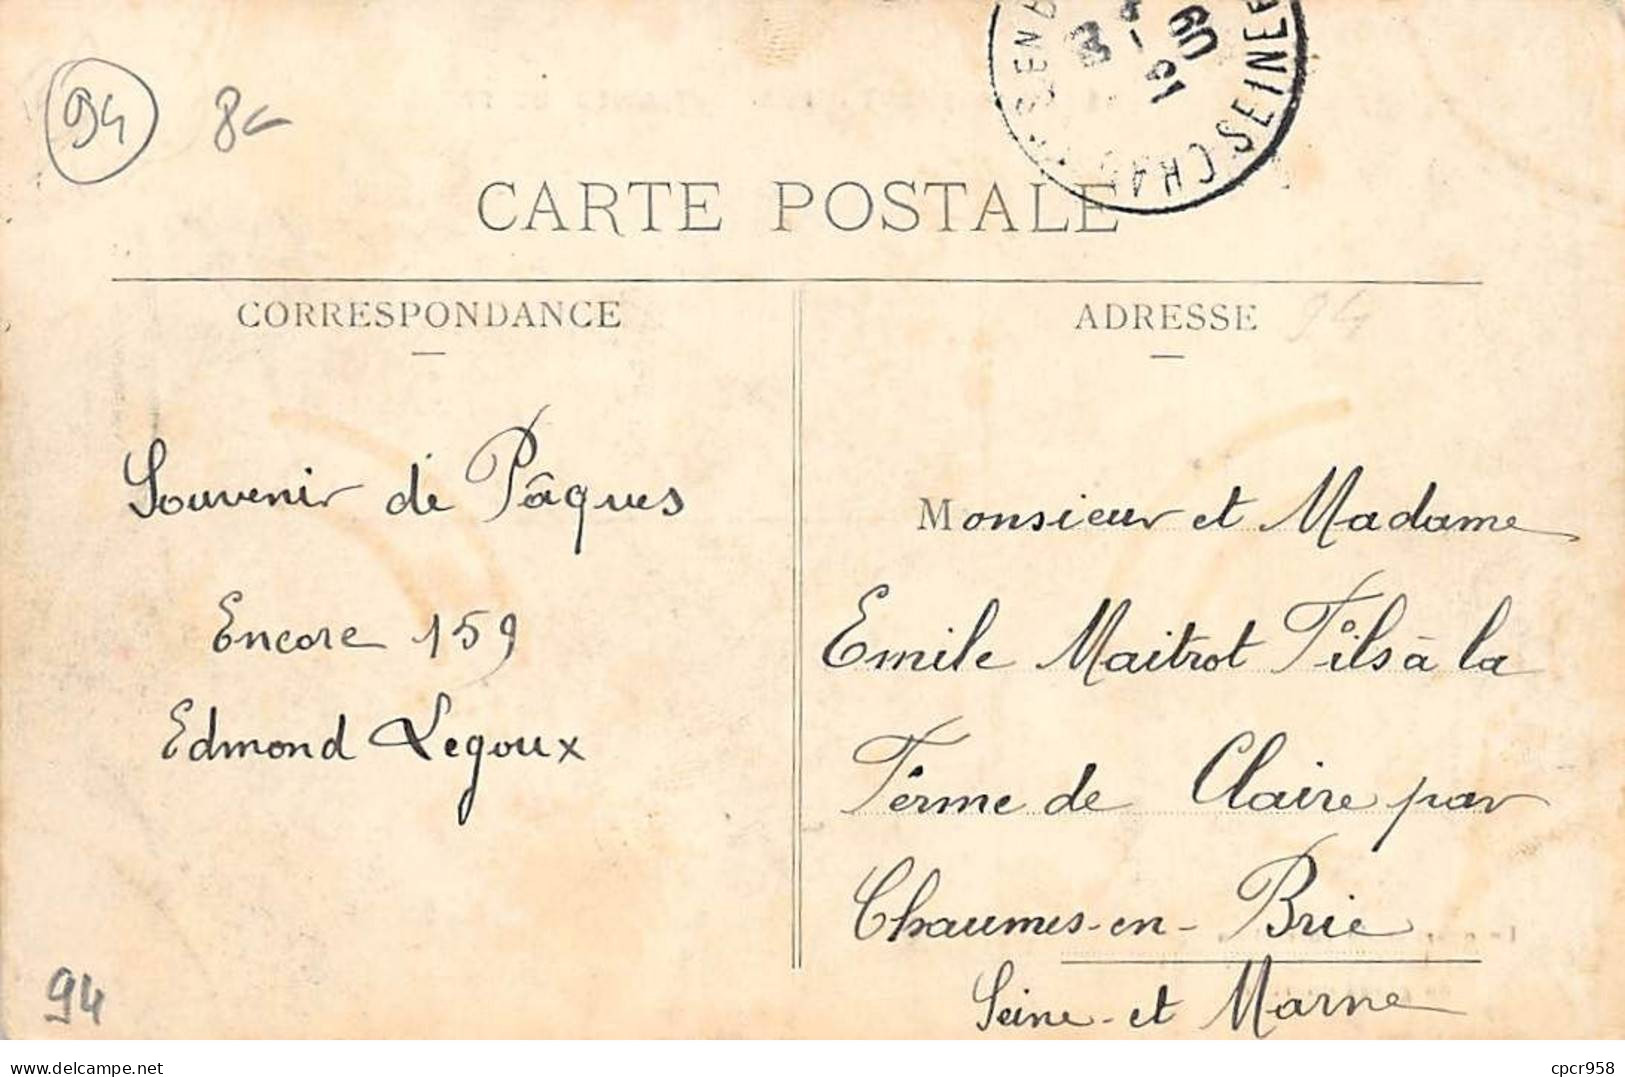 94
8
CARTE POSTALE
CORRESPONDANCE
ADRESSE
94
Souvenir de Pâques
Encore 159
Edmond Legoux
Monsieur et Madame
Emile Maitrot Fils à la
Ferme de Claire par
Chaumes-en-Brie
Seine-et Marne
94
SEINE
09
delcampe.net
cpcr958